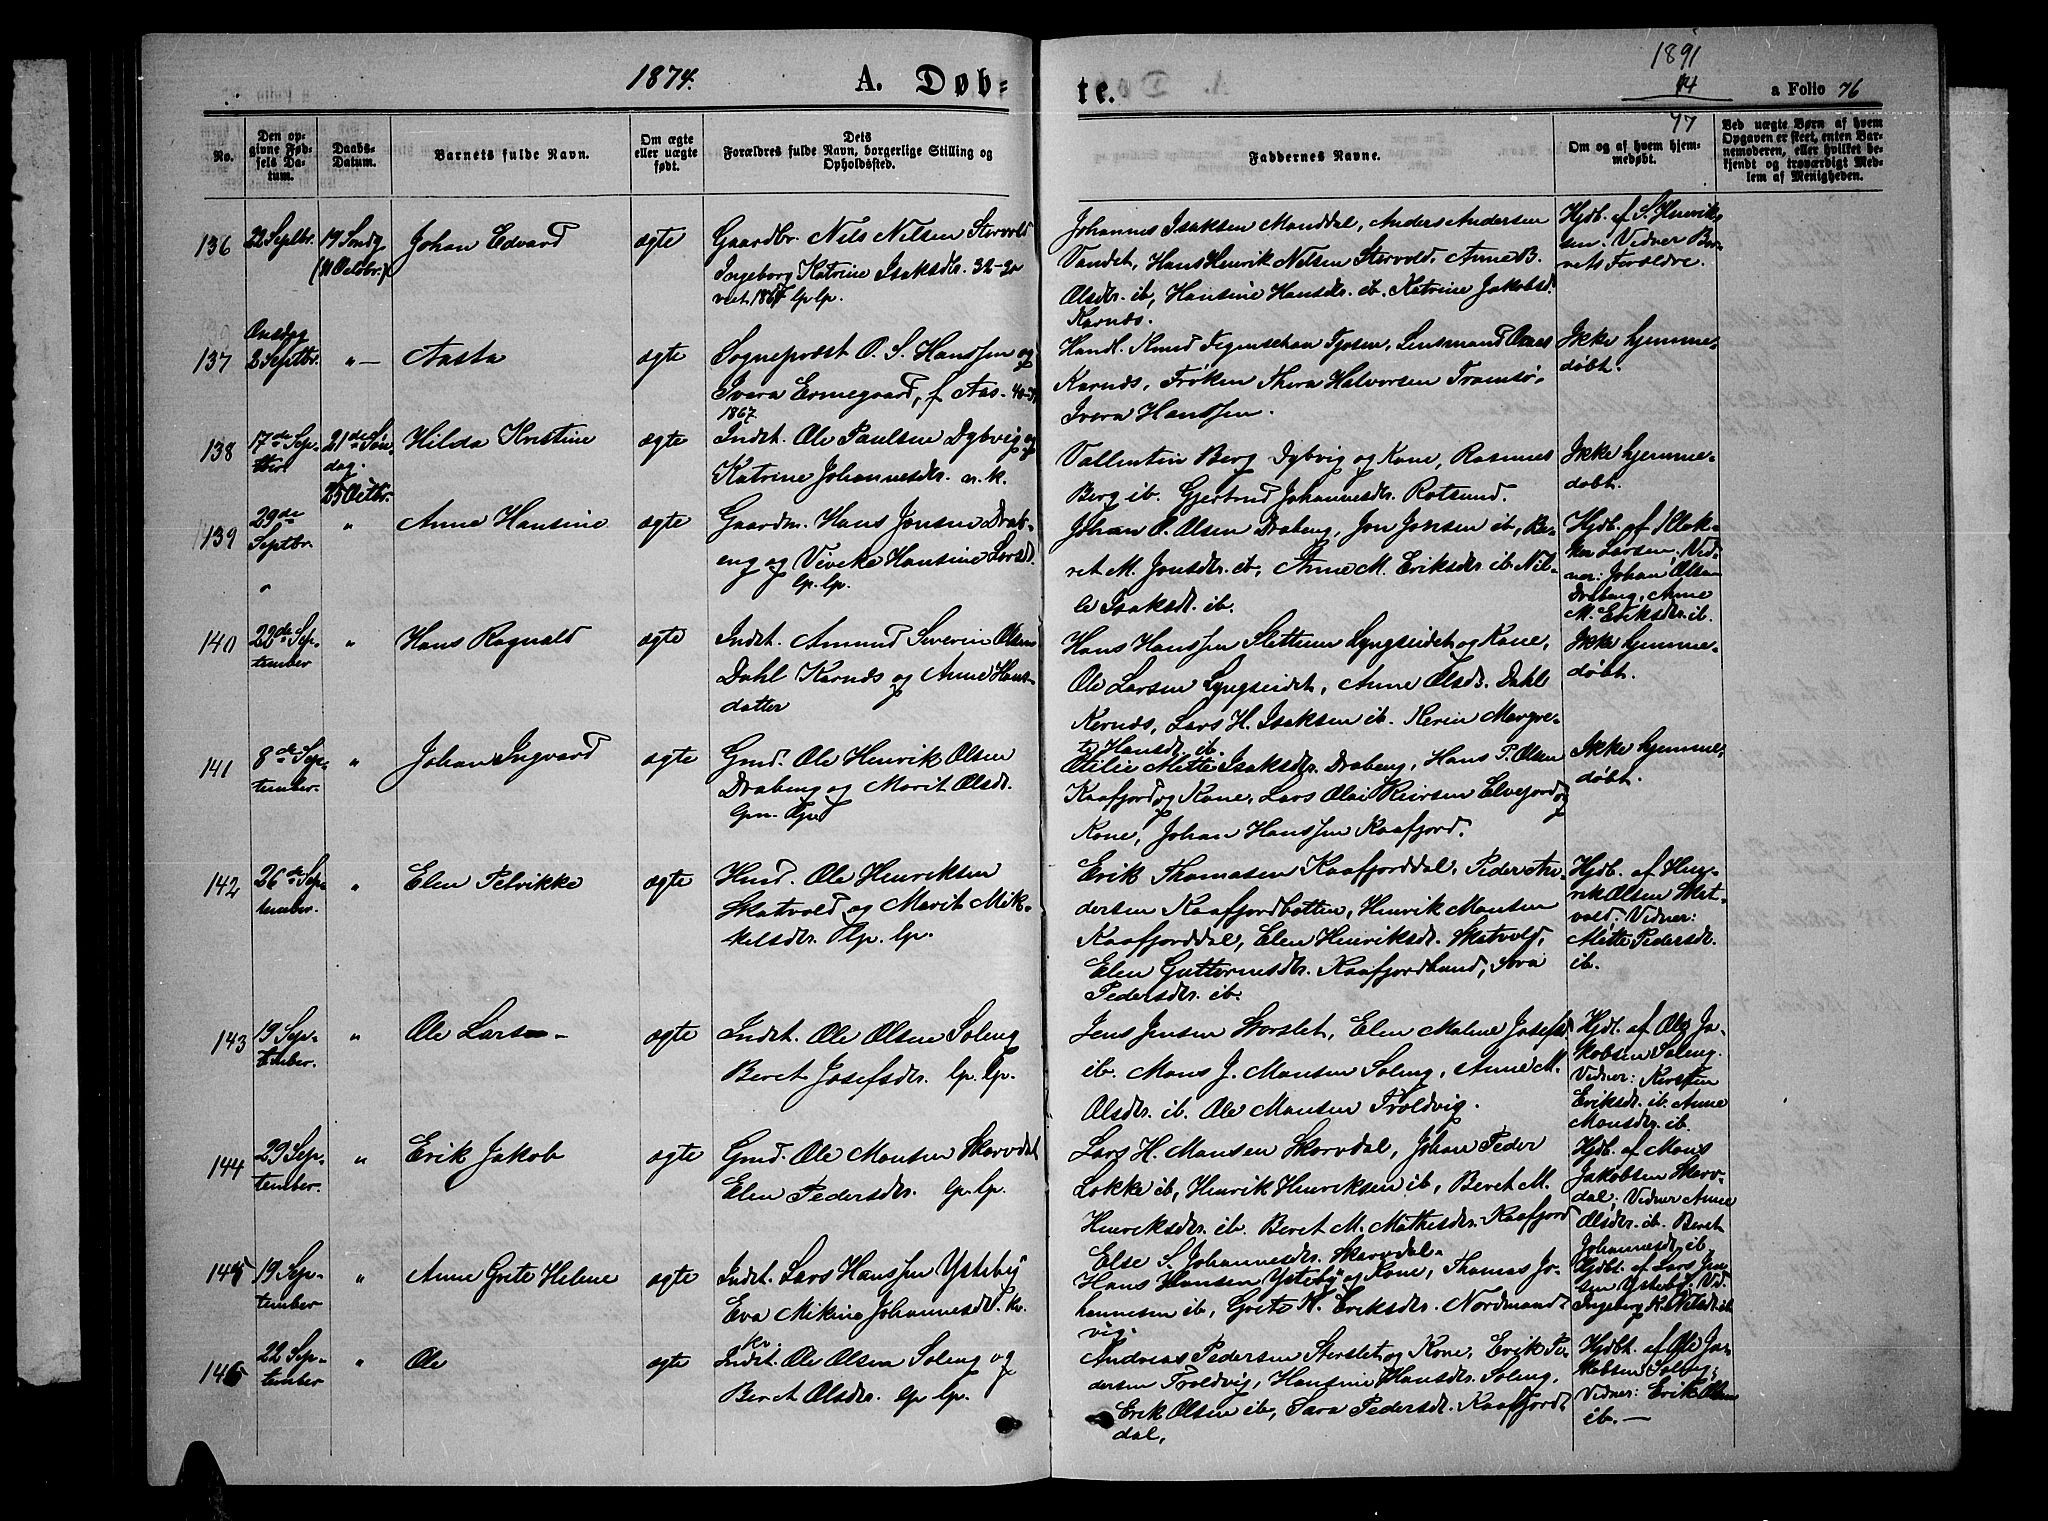 1874.
A. Døb=
te.
1891
a Folio 76
No.
Den op=
givne Fød=
sels Da=
tum.
Daabs=
Datum.
Barnets fulde Navn.
Om ægte
eller uægte
født.
Dets
Forældres fulde Navn, borgerlige Stilling og
Opholdssted.
Faddernes Navne.
Om og af hvem hjem=
medøbt.
Ved uægte Børn af hvem
Opgaven er skeet, enten Bar=
nemoderen, eller hvilket be=
kjendt og troværdigt Med=
lem af Menigheden.
136
22 Septbr.
19 Sondg
(11 Octobr.)
Johan Edvard
ægte
Gaardbr. Nils Nilsen Storvold
Ingeborg Katrine Isaksdr. 32-30
viet 1867 lp lp.
Johannes Isaksen Manddal, Anders Andersen
Vandet, Hans Henrik Nilsen Storvold, Anne B.
Olsdr. ib, Hansine Hansdr. ib. Katrine Jakobsd.
Karnæs.
Hjdb. af S. Henrik-
sen. Vidner Bar-
nets Forældre.
137
Onsdag
2 Septbr.
" —
Aasta
ægte
Sogneprost O. S. Hanssen og
Ivara Ermegaard, f Aas.
1867
Handl. Knud Figenschau Tjosen, Lensmand
Karnæs, Frøken Thora Halvorsen Tromsø,
Ivera Hanssen.
Ikke hjemme-
døbt.
138
17de Sep-
tbr.
21de Søn-
dag.
25 Octbr.
Hilda Kristine
ægte
Indst. Ole Paulsen Dybvig og
Katrine Johannesdr. n. k.
Vallentin Berg Dybvig og Kone, Rasmus
Berg ib. Gjertrud Johannesdr. Rotsund.
Ikke hjemme-
døbt.
139
29de
Septbr.
"
Anne Hansine
ægte
Gaardm. Hans Jonsen Drab-
eng og Viveke Hansine Larsd.
lp. lp.
Johan O. Olsen Drabeng, Jon Jonsen ib, Be-
ret M. Jonsdr. ib, Anne M. Eriksdr ib. Nil-
le Isaksdr. ib.
Hjdb. af Klok-
ker Larsen. Vid-
ner: Johan Olsen
Drabeng, Anne
M. Eriksdr. ib.
140
22de Sep-
tember
"
Hans Ragnald
ægte
Indst. Amund Severin Olsen
Dahl Karnæs og Anne Hans-
datter
Hans Hanssen Slettum Lyngseidet og Kone,
Ole Larsen Lyngseidet, Anne Olsdr. Dahl
Karnæs, Lars H. Isaksen ib. Karin Margre-
te Hansdr. ib.
Ikke hjemme-
døbt.
141
8de Sep-
tember.
"
Johan Ingvard
ægte
Gmd. Ole Henrik Olsen
Drabeng og Marit Olsdr.
Otilie Mette Isaksdr. Drabeng, Hans P. Olsen
Kaafjord og Kone, Lars Olai Elvejord og
Kone, Johan Hanssen Kaafjord.
Ikke hjemme-
døbt.
142
26de Sep-
tember.
"
Elen Petrikke
ægte
Hmd. Ole Henriksen
Skatvold og Marit Mik-
kelsdr. lp. lp.
Erik Thomasen Kaafjorddal, Peder An-
dersen Kaafjordbotten, Henrik Monsen
Kaafjorddal, Elen Henriksdr. Skatvold,
Elen Guttormsdr. Kaafjordlund, Sara
Pedersdr. ib.
Hjdb. af Hen-
rik Olsen Skat-
vold. Vidner:
Mette Pedersdr.
ib.
143
19 Sep-
tember.
"
Ole Lars —
ægte
Indst. Ole Olsen Soleng
Beret Josefsdr. lp. lp.
Jens Jensen Storslet, Elen Malene Josefsd.
ib. Mons J. Monsen Soleng, Anne M.
Olsdr. ib. Ole Monsen Troldvig.
Hjdb. af Ole Ja-
kobsen Soleng.
Vidner: Kirsten
Eriksdr. ib. Anne
Monsdr. ib.
144
29 Sep-
tember.
"
Erik Jakob
ægte
Gmd. Ole Monsen Skarvdal
Elen Pedersdr. lp. lp.
Lars H. Monsen Skarvdal, Johan Peder
Løkke ib, Henrik Henriksen ib, Beret M.
Henriksdr. ib. Beret M. Mathisdr. Kaafjord
Else S. Johannesdr. Skarvdal.
Hjdb. af Mons
Jakobsen Skarv-
dal. Vidner Anne
Olsdr. ib. Beret
Johannesdr. ib.
145
19 Sep-
tember
"
Anne Grete Helene
ægte
Indst. Lars Hanssen Ysteby
Eva Mikine Johannesdr. kv.
kv
Hans Hansen Ysteby og Kone, Thomas Jo-
hannesen ib, Grete M. Eriksdr. Nordmand-
vig.
Hjdbt. af Lars Jen-
sen Ysteby. Vid.
Ingeborg K. Nilsdr. ib
146
22 Sep-
tember
"
Ole
ægte
Indst. Ole Olsen Soleng og
Beret Olsdr. lp lp.
Andreas Pedersen Storslet og Kone, Erik Pe-
dersen Troldvig, Hansine Hansdr. Soleng,
Erik Olsen ib, Sara Pedersdr. Kaafjord-
dal,
Hjdbt. af Ole Ja-
kobsen Soleng,
Vidner: Erik Olsen
ib. —